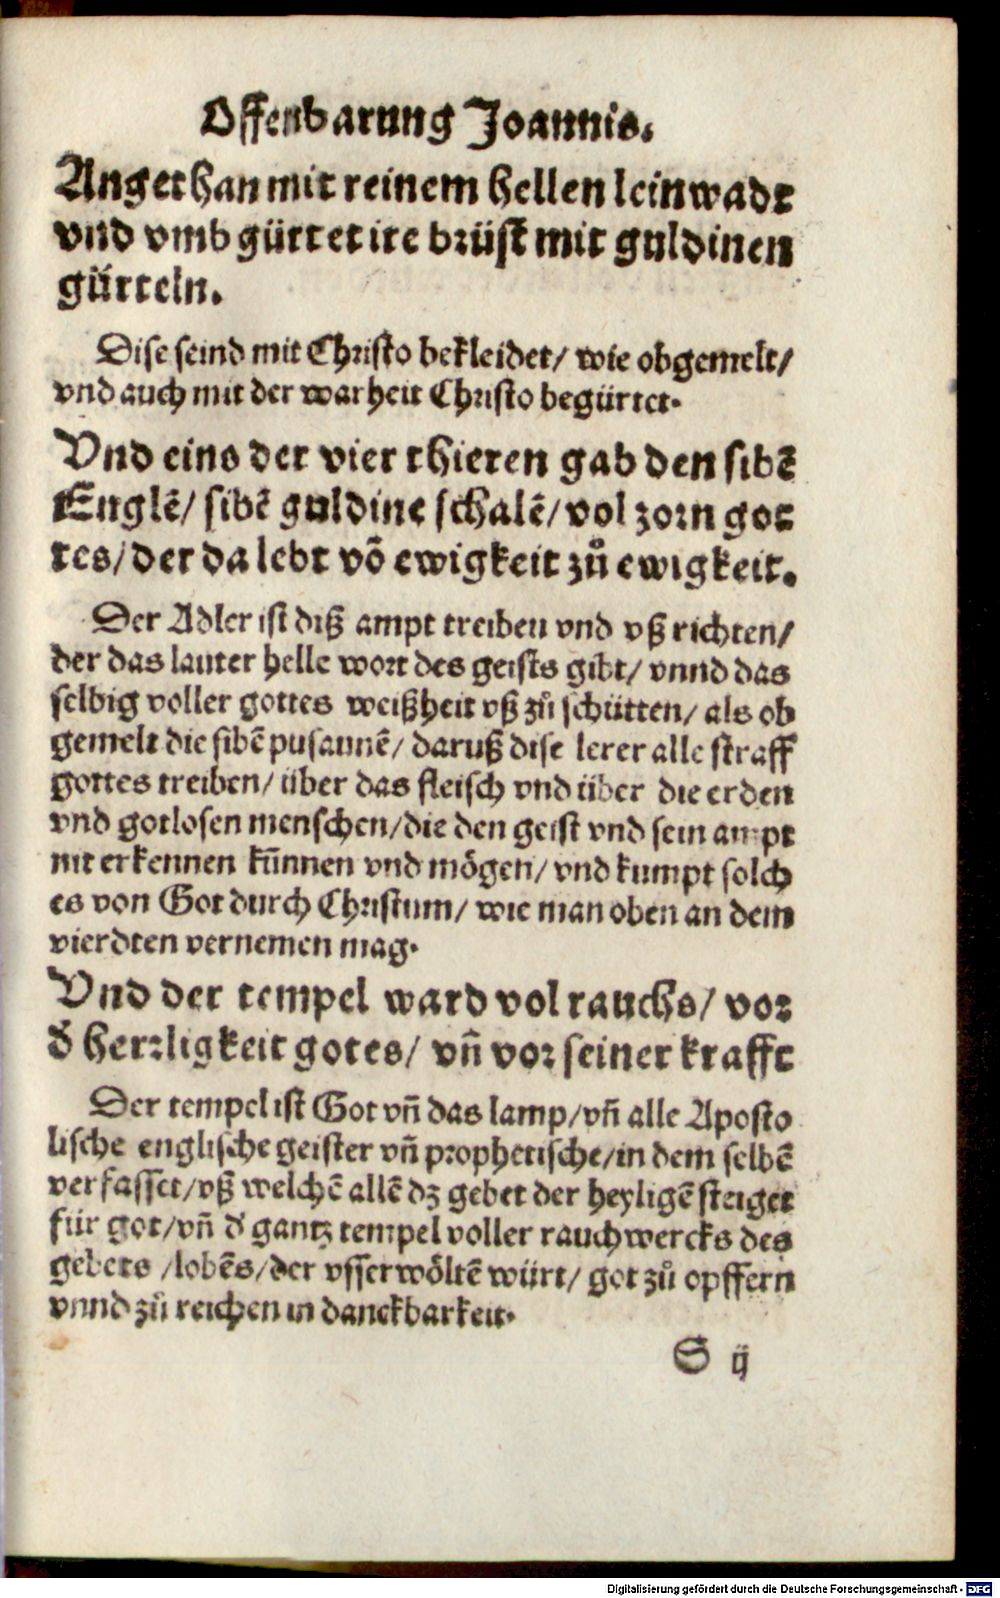 Offenbarung Joannis.
Angethan mit reinem hellen leinwadt
vnd vmbgürtet ire brüst mit guldinen
gürteln.
Dise seind mit Christo bekleidet/ wie obgemelt/
vnd auch mit der warheit Christo begürtet.
Vnd eins der vier thieren gab den sibẽ
Englẽ/ sibẽ guldine schalẽ/ vol zorn got
tes/ der da lebt võ ewigkeit zů ewigkeit.
Der Adler ist diß ampt treiben vnd vß richten/
der das lauter helle wort des geists gibt/ vnnd das
selbig voller gottes weißheit vß zů schütten/ als ob
gemelt die sibẽ pusaunẽ/ daruß dise lerer alle straff
gottes treiben/ über das fleisch vnd über die erden
vnd gotlosen menschen/ die den geist vnd sein ampt
nit erkennen künnen vnd mögen/ vnd kumpt solch
es von Got durch Christum/ wie man oben an dem
vierdten vernemen mag.
Vnd der tempel ward vol rauchs/ vor
d̃ herrligkeit gotes/ vñ vor seiner krafft
Der tempel ist Got vñ das lamp/ vñ alle Aposto
lische englische geister vñ prophetische/ in dem selbẽ
verfasset/ vß welchẽ allẽ dz gebet der heyligẽ steiget
für got/ vñ d̃ gantz tempel voller rauchwercks des
gebets /lobẽs/ der vsserwöltẽ würt/ got zů opffern
vnnd zů reichen in danckbarkeit.
S ij
Digitalisierung gefördert durch die Deutsche Forschungsgemeinschaft - DFG